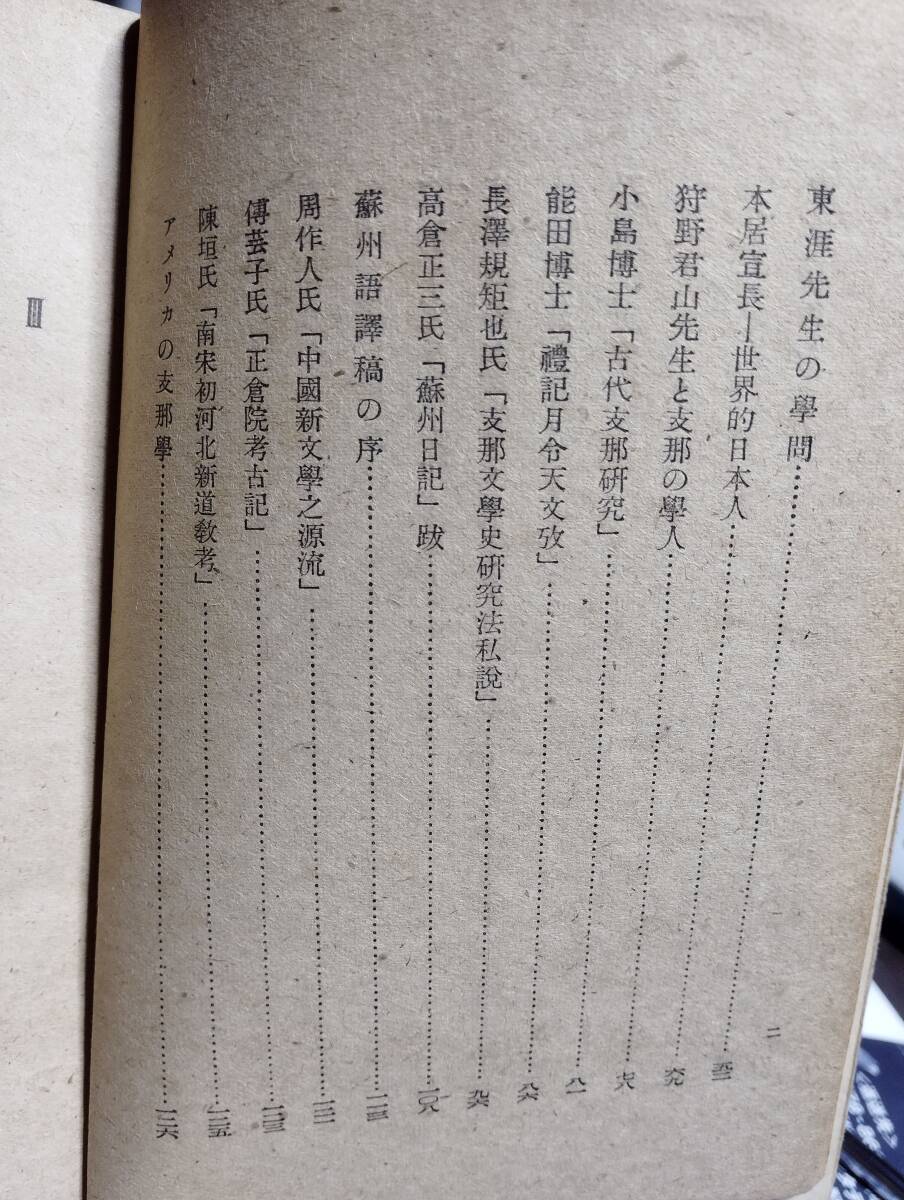 二
東涯先生の學問……五二
本居宣長―世界的日本人……六九
狩野君山先生と支那の學人……七八
小島博士「古代支那研究」……八一
能田博士「禮記月令天文攷」……八六
長澤規矩也氏「支那文學史研究法私說」……九六
高倉正三氏「蘇州日記」跋……一〇八
蘇州語譯稿の序……一一三
周作人氏「中國新文學之源流」……一二一
傅芸子氏「正倉院考古記」……一二三
陳垣氏「南宋初河北新道敎考」……一二五
アメリカの支那學……一二六
Ⅲ